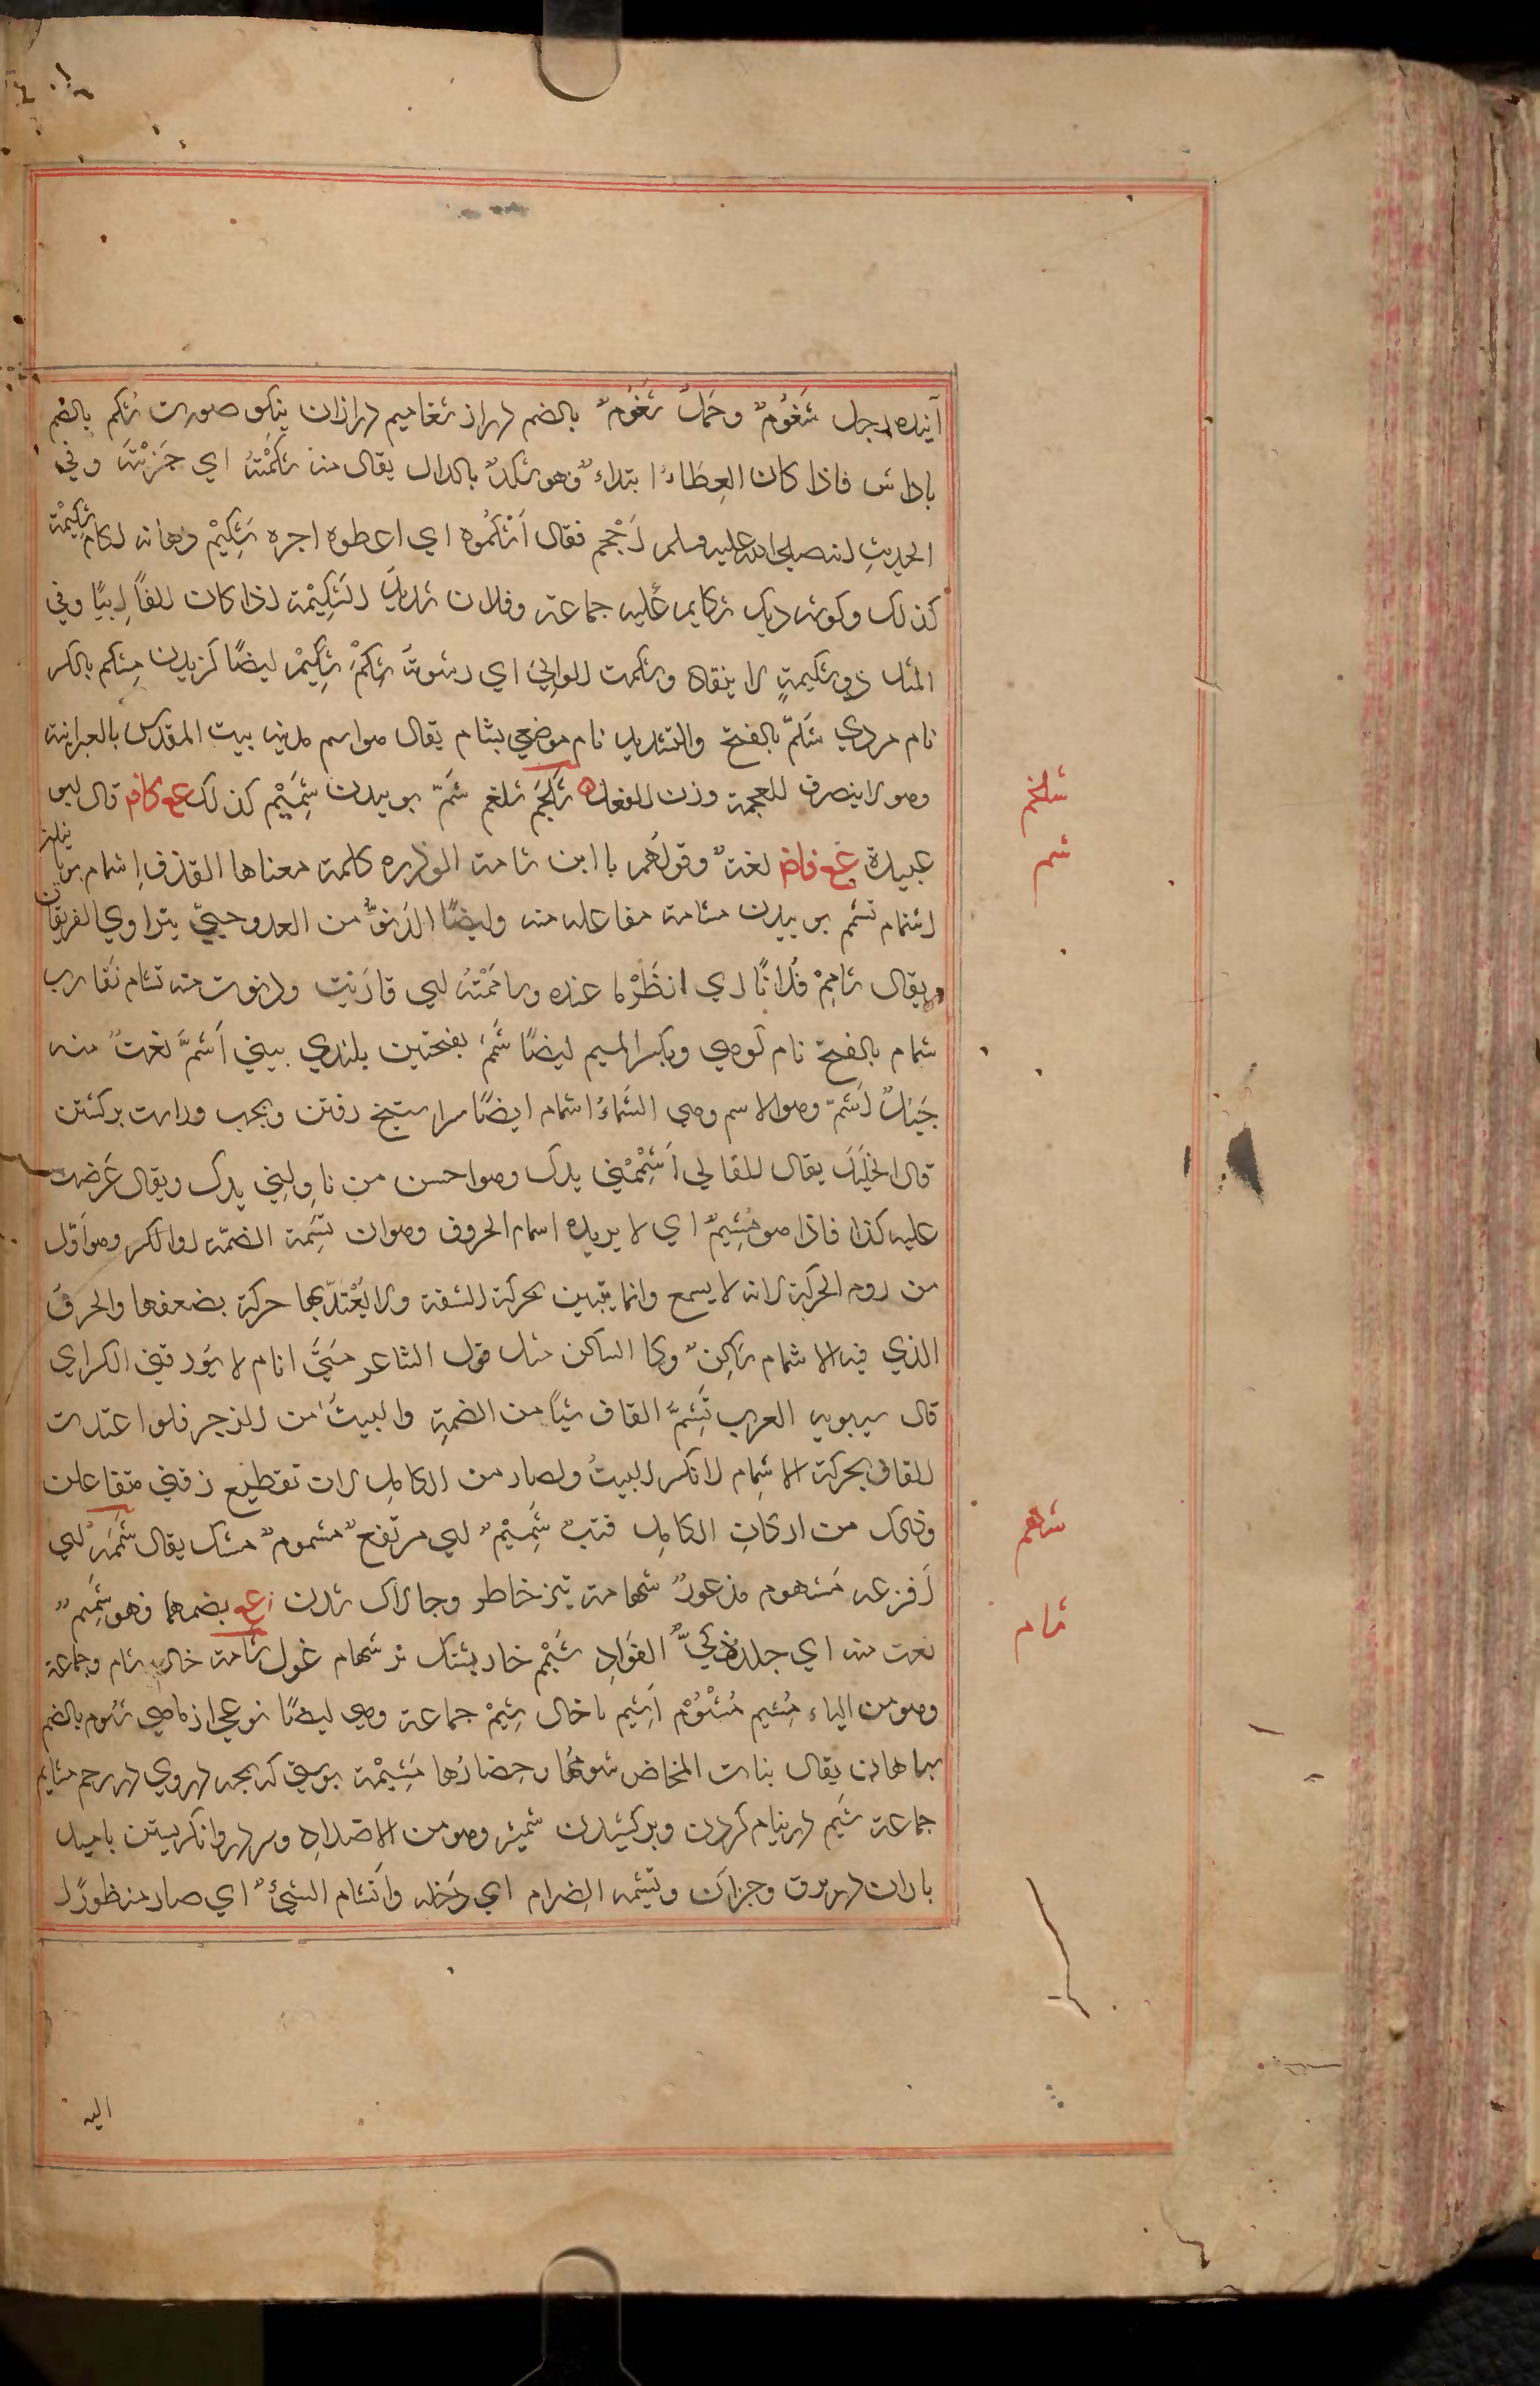 آینده رجل شُغْمُومٌ وجمل شُغْمُومٌ بالضم دراز شغامیم درازان نیکو صورت شکم بالضم
پاداش فاذا کان العطاء ابتداء فهو شکد بالدال یقال منه شکمته ای جزیته وفی
الحدیث انه صلی الله علیه وسلم احتجم فقال اشکموه ای اعطوه اجره شکیم دهانه لکام شکیمة
کذلک وکوشه دیک شکایم علیه جماعة وفلان شدید الشکیمة اذا کان انفا ابیا وفی
المثل ذو شکیمة لا ینقاد وشکمت الوالی ای رشوته شکم شکیم ایضا کزیدن مشکم بالکسر
نام مردی شلم بالفتح والتشدید نام موضعی بشام یقال هو اسم مدینه بیت المقدس بالعبرانیة
وهو لا ینصرف للعجمة وزن الفعل شلجم شلغم شم بوییدن شمیم کذلک ع ع کاف قال ابو
عبیدة ع غ فاض لغة وقولهم یا ابن شامة الوذرة کلمة معناها القذف اشمام بویانیدن
اشتمام تشمم بوییدن مشامة مفاعله منه وایضا الدنو من العدو حتی یتراوی الفریقان
ویقال شامم فلانا ای انظر ما عنده وشاممته ای قاربت ودنوت منه تشام تقارب
شمام بالفتح نام کوهی وبکسر المیم ایضا شمم بفتحتین بلندی بینی اشم نعت منه
جبل اشم وهو الاسم وهی الشماء اشمام ایضا سر ستیخ رفتن وبچپ وراست برکشتن
قال الخلیل یقال للقالی اشممنی یدک وهو احسن من ناولنی یدک ویقال عرضت
علیه کذا فاذا هو مشم ای لا یریده اشمام الحروف وهو ان تشمه الضمة او الکسر وهو اقل
من روم الحرکة لانه لا یسمع وانما یتبین بحرکة الشفة ولا یعتد بها حرکة بضعفها والحرف
الذی فیه الاشمام ساکن او کالساکن مثل قول الشاعر متی انام لا یؤرقنی الکری
قال سیبویه العرب تشم القاف شیئا من الضمة والبیت من الرجز فلو اعتدت
القاف بحرکة الاشمام لانکسر البیت ولصار من الکامل لان تقطیع رقنی متفاعلن
وذلک من ارکان الکامل قتب شمیم ای مرتفع مشموم مشک یقال شهمه ای
افزعه مشهوم مذعور شهامة تیز خاطر وچالاک شدن ع بضمهما فهو شهم
نعت منه ای جلد ذکی الفواد شیهم خار پشتک نر شهام غول شامة خال شام جماعة
وهو من الیاء مشیم مشئوم اشیم با خال شیم جماعة وهی ایضا نوعی از ماهی شوم بالضم
سیاهان یقال بنات المخاض شومها وحضارها مشیمة پوستی که بچه دروی در رحم مشایم
جماعة شیم در نیام کردن وبرکشیدن شمشیر وهو من الاضداد وسر در هوا نکریستن بامید
باران در برق وجزآن وتشیمه الضرام ای دخله وانشام الشیئ ای صار منظورا
شلجم
شم
شهم
شام
الیه